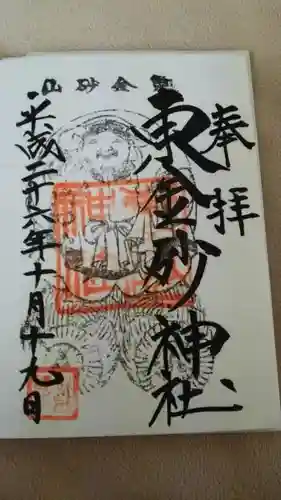 奉拝
東金砂神社
平成二十六年十月十九日
東金砂山